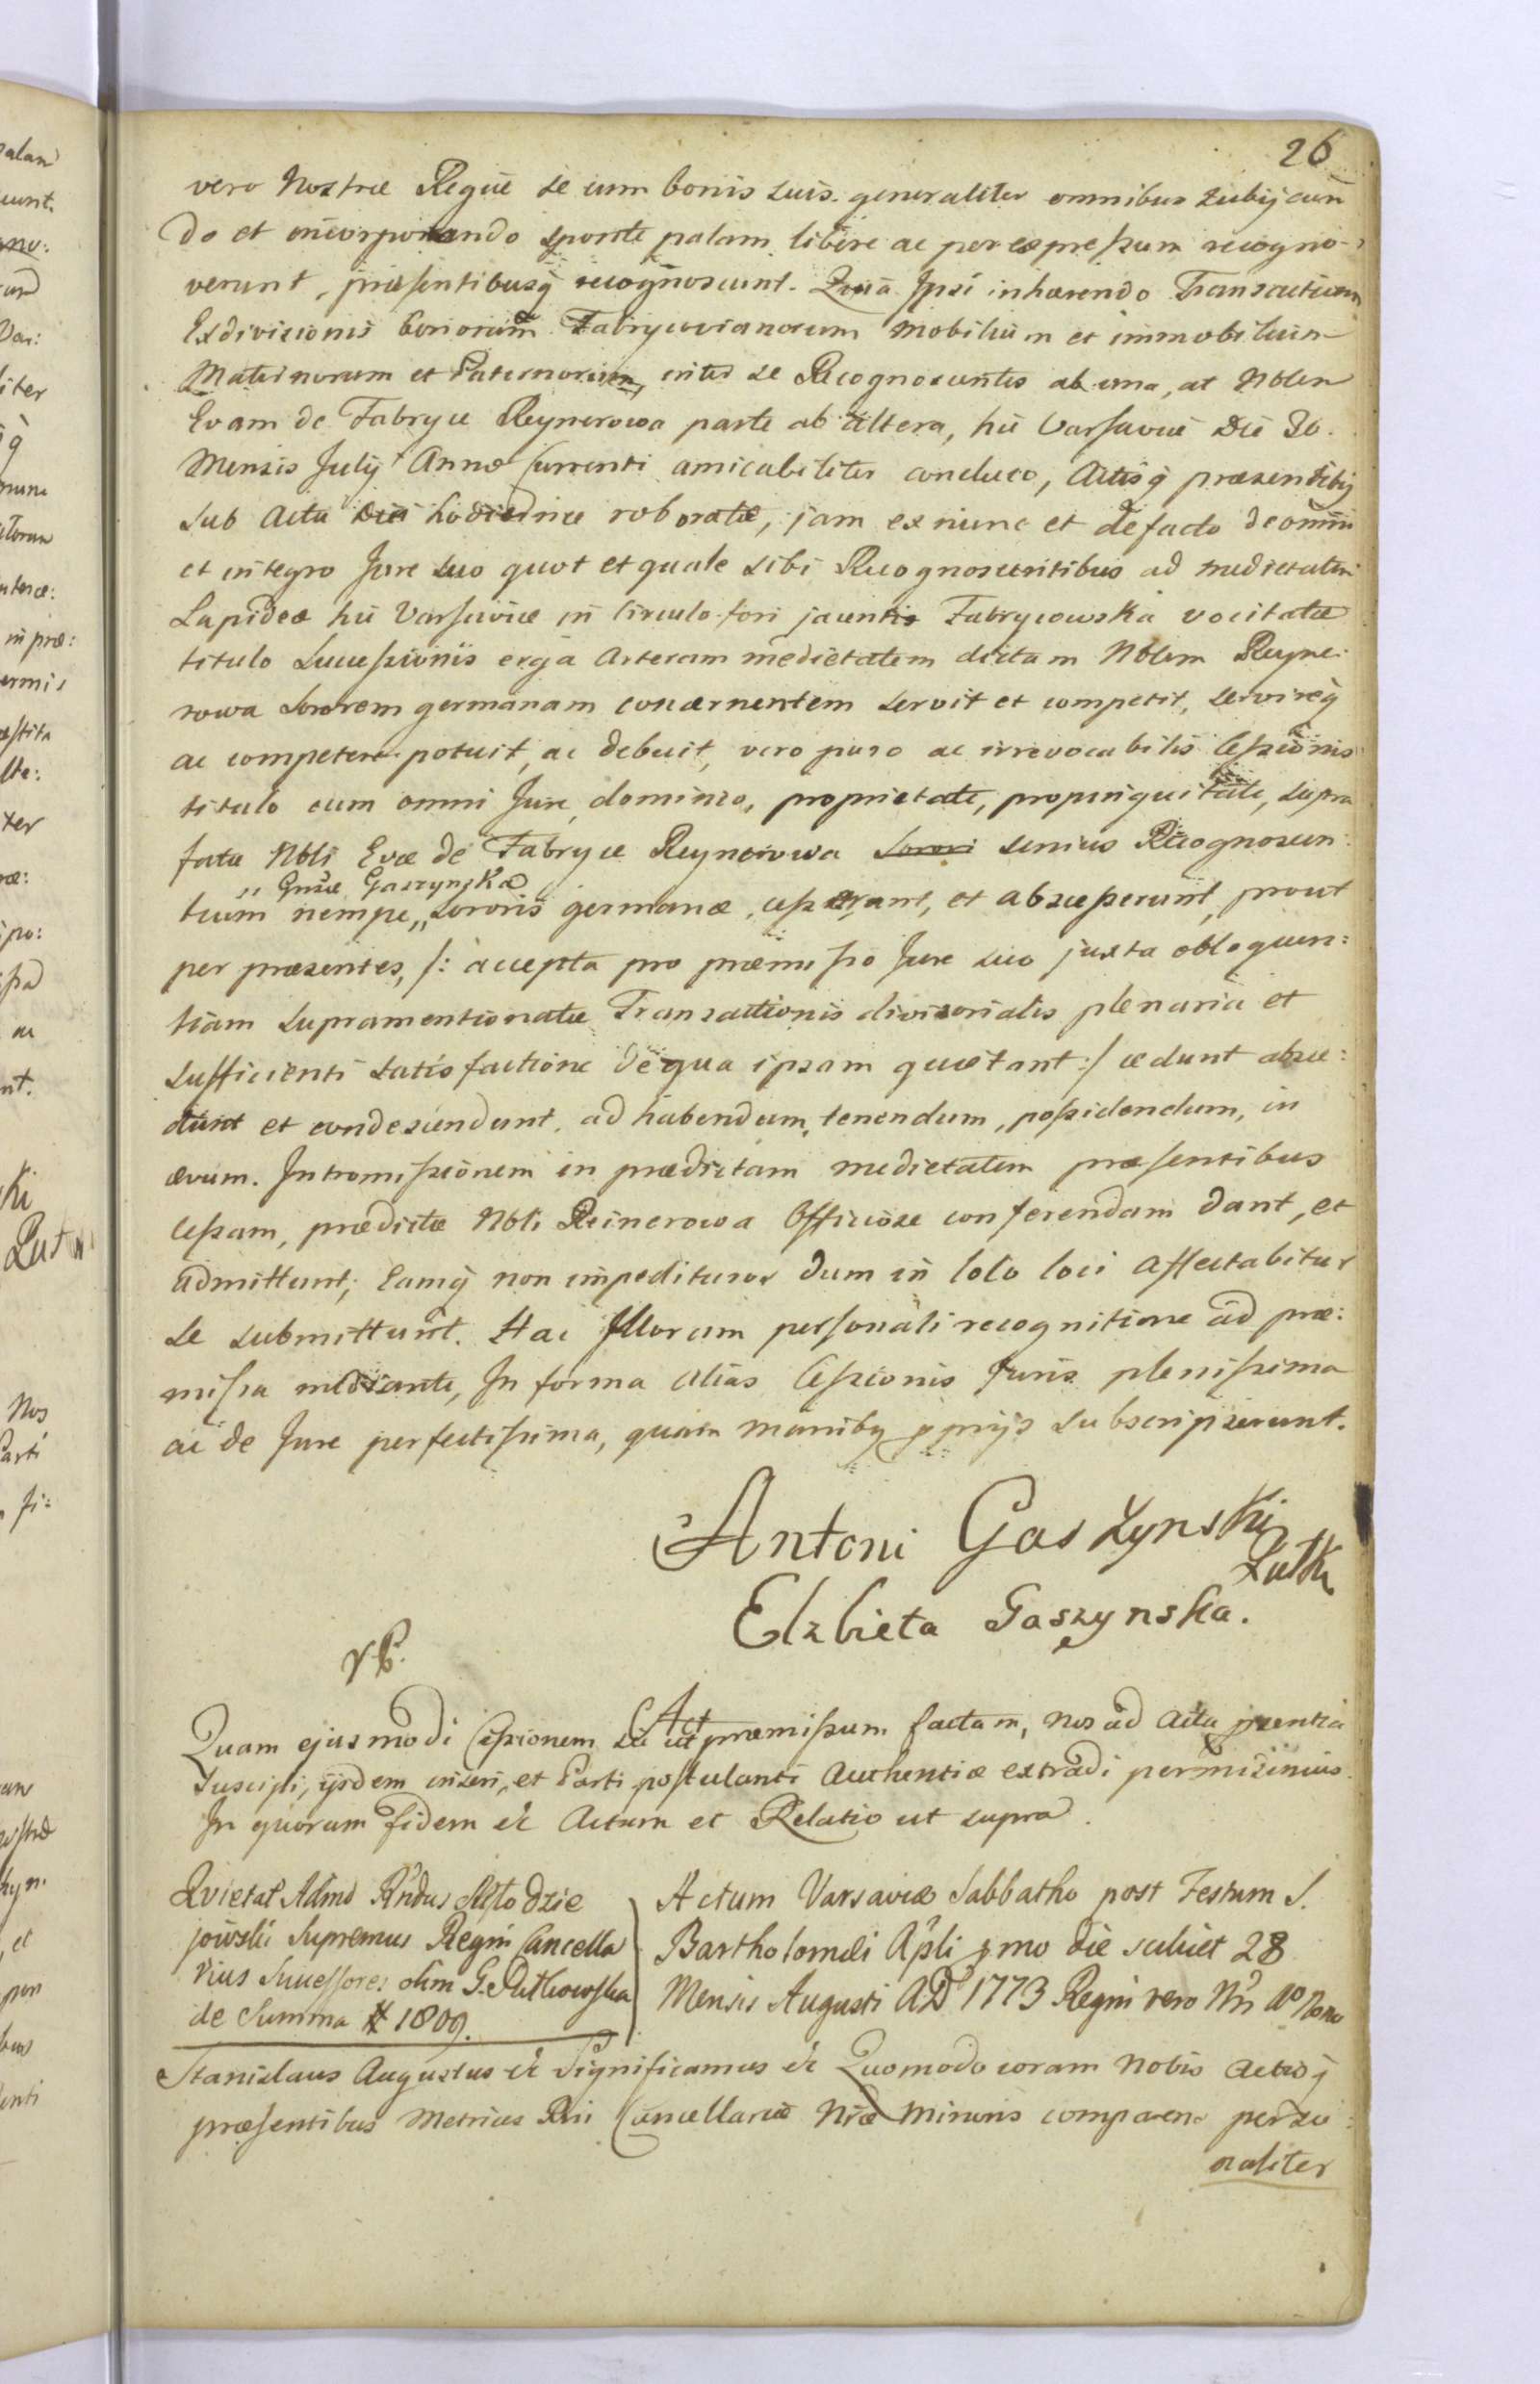 26
vero Nostræ Regiæ se cum bonis suis generaliter omnibus subijcien
do et incorporando sponte palam libere ac per expressum recogno-
verunt, præsentibusq recognoscunt. Quia Ipsi inhærendo Transactioni
Exdivisionis bonorum Fabrycovianorum mobilium et immobilium
Maternorum et Paternorum, inter se Recognoscentes ab una, at Nblem
Evam de Fabryce Reynerowa parte ab altera, hic Varsaviæ Die 30.
Mensis Julij Anno Currenti amicabiliter concluso, Actisq præsentibg
sub Actu Diei hodiernæ roboratæ, jam ex nunc et de facto de omni
et integro Jure suo quot et quale sibi Recognoscentibus ad medietatem
Lapideæ hic Varsaviæ in Circulo fori jacentis Fabrycowska vocitatæ
titulo Successionis erga Alteram medietatem dictam Nblem Reyne:
rowa Sororem germanam concernentem servit et competit, servireq
ac competere potuit, ac debuit, vero puro ac irrevocabilis Cessionis
titulo cum omni Jure, dominio, proprietate, propinquitate, supra
fatæ Nbli Evæ de Fabryce Reynerowa Sorori senius Recognoscen:
,, Gnsæ Gaszynska
tium nempe ,, Sororis germanæ, cesserant, et abscesserunt, prout
per præsentes, /: accepta pro præmisso Jure suo juxta obloquen:
tiam supramentionatæ Transactionis divisorialis plenaria et
sufficienti satisfactione de qua ipsam quietant :/ cedunt absce:
dunt et condescendunt. ad habendum, tenendum, possidendum, in
ævum. Intromissionem in prædictam medietatem præsentibus
Cessam, prædictæ Nbli Reinerowa Officiose conferendam dant, et
admittunt; Eamq non impedituros dum in lolo loci affectabitur
se submittunt. Hac Illorum personali recognitione ad præ:
missa mediante, In forma alias Cessionis Juris plenissima
ac de Jure perfectissima, quam manibg pprijs subscripserunt.
Antoni Gaszynski
Elzbieta Gaszynska.
Quam ejusmodi Cessionem Se Act ut præmissum factam, nos ad Acta pæntia
Suscipi, ijsdem inseri, et Parti postulanti Authenticæ extradi permisimus.
In quorum fidem &c Actum et Relatio ut supra.
Qvietat Admd Rndus Młodzie
jowski Supremus Regni Cancella
rius Successores olim G. Rutkowska
de Summa # 1809.
Actum Varsaviæ Sabbatho post Festum S.
Bartholomæi Apli pmo die scilicet 28
Mensis Augusti AD 1773 Regni vero Nri Ao Nono
Stanislaus Augustus &c Significamus &c Quomodo coram Nobis Actisq
præsentibus Metrices Rni Cancellariæ Nræ Minoris comparens perso:
naliter